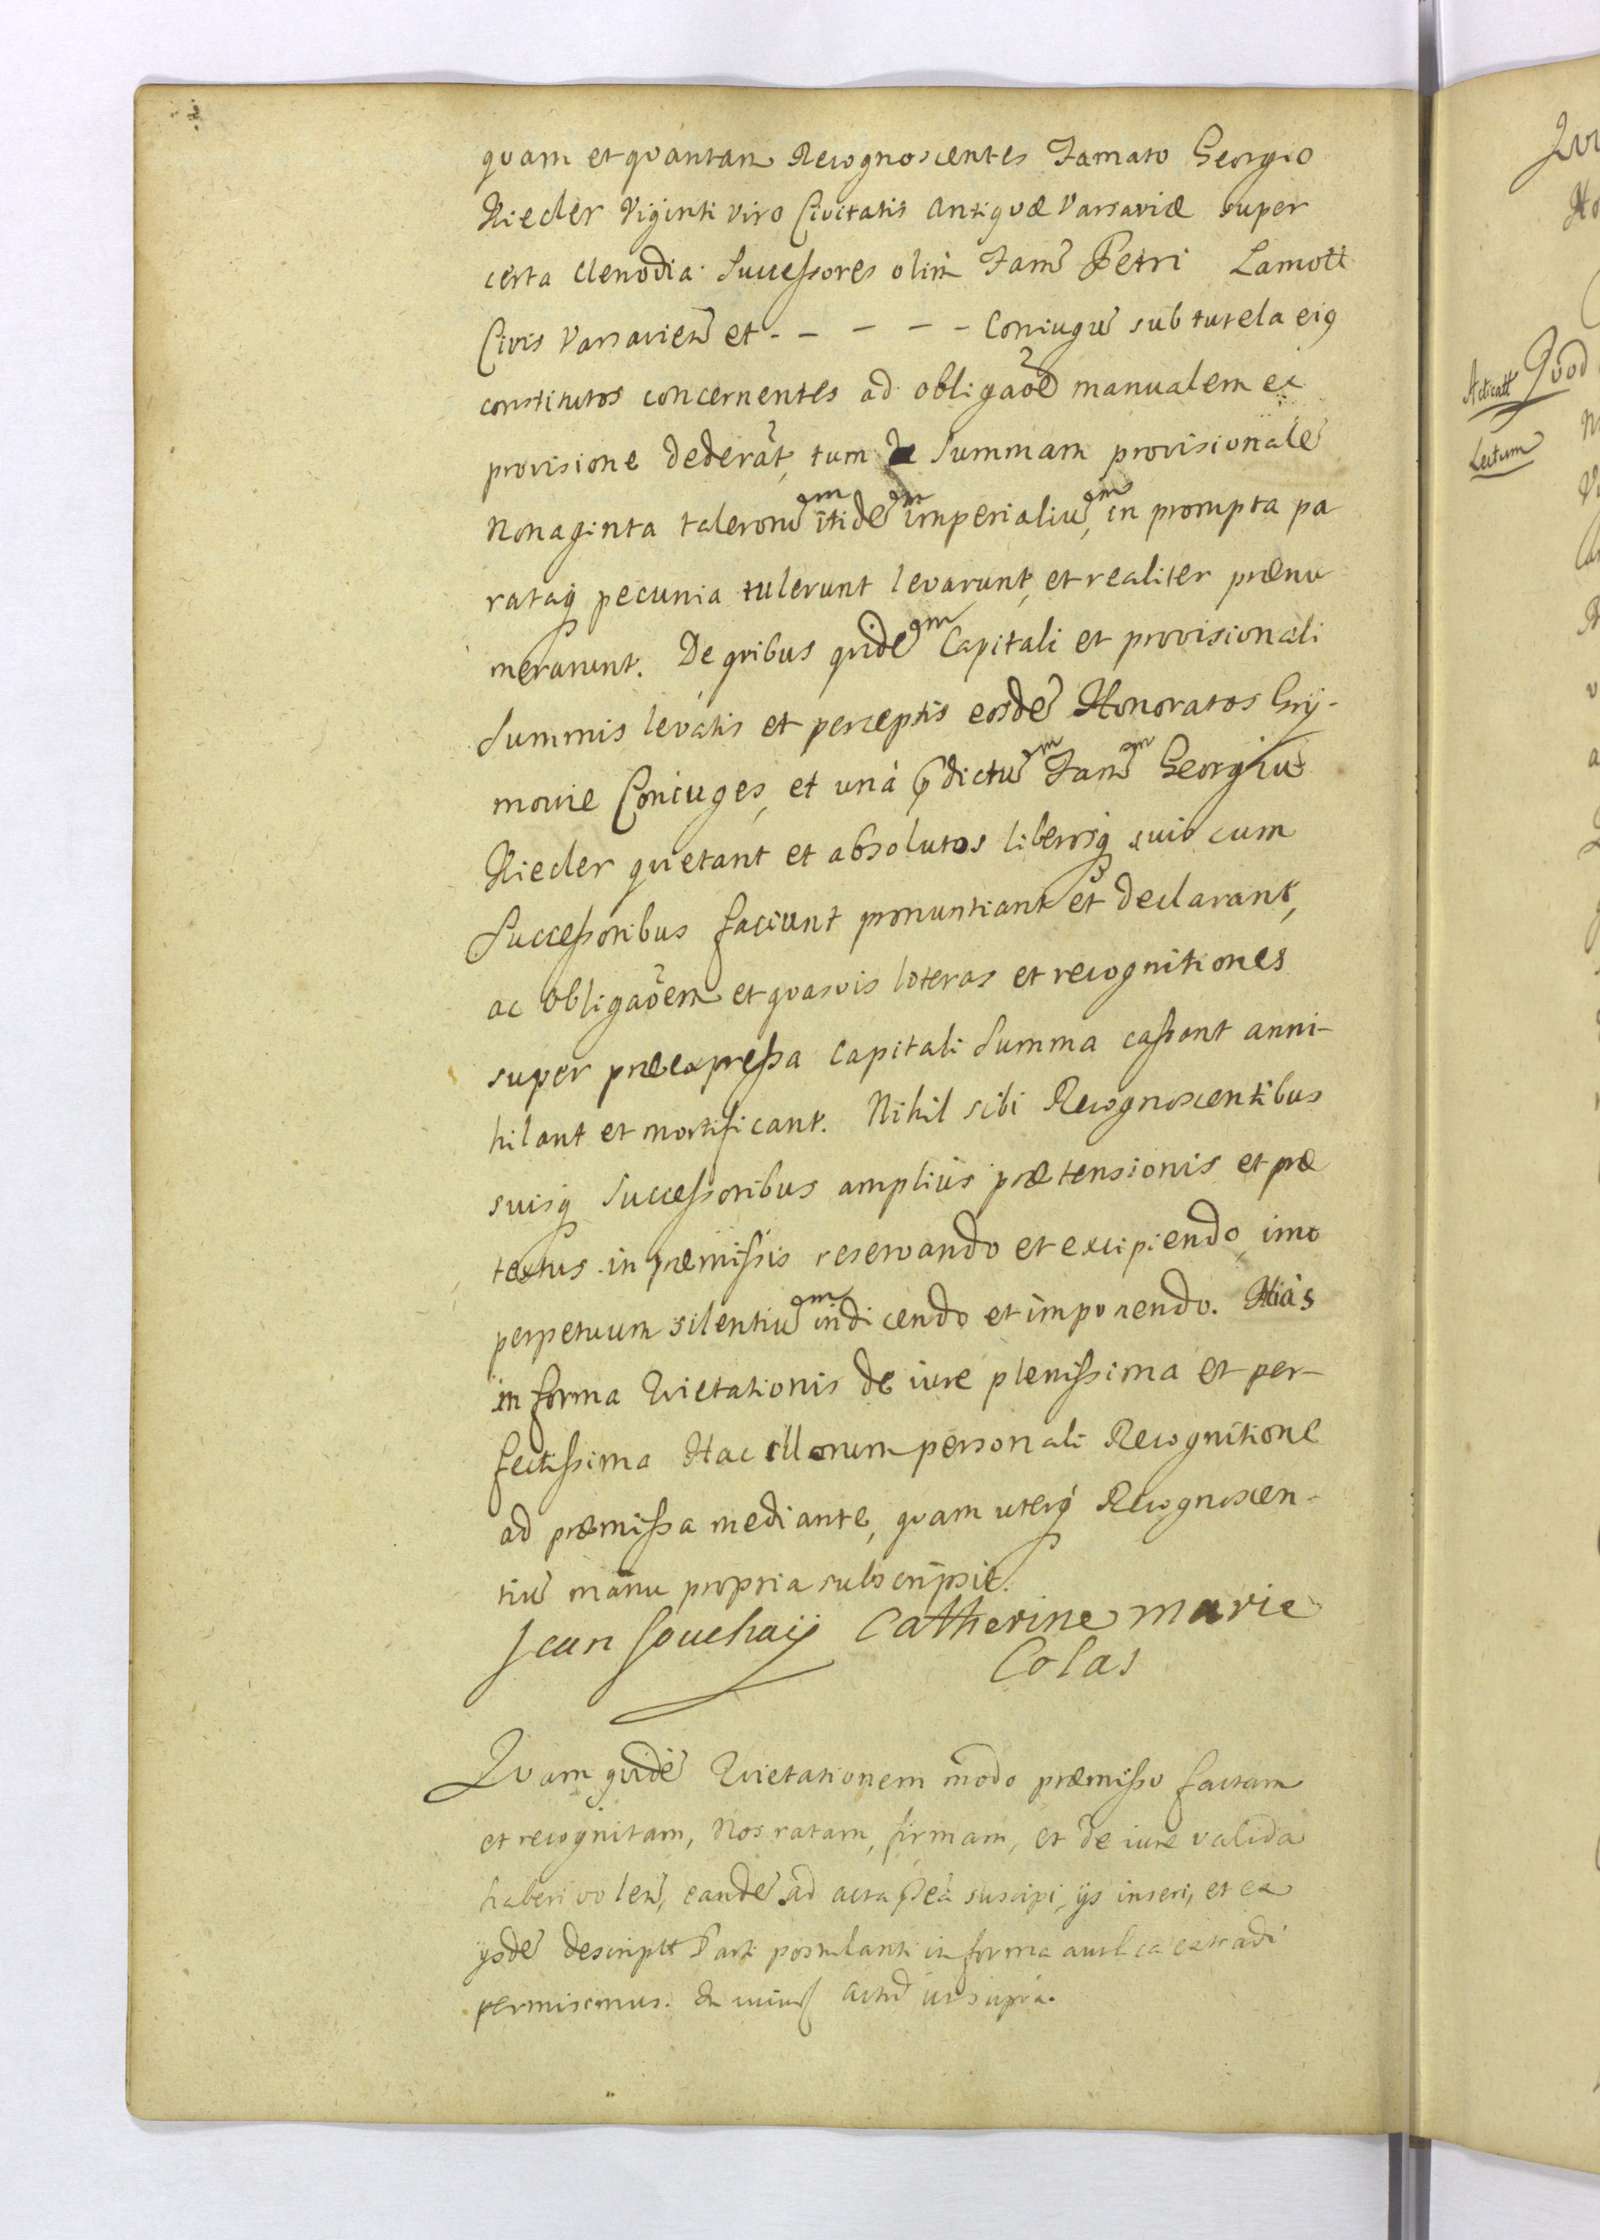 quam et quantam Recognoscentes Famato Georgio
Rieder Viginti viro Civitatis Antiquæ Varsaviæ super
certa Clenodia Successores olim Famẽ Petri Lamott
Civis Varsavieñ et - - - - - Coniugũ sub tutela eiq
constitutos concernentes ad obligaõẽ manualem ex
provisione dederãt, tum de Summam provisionalẽ
Nonaginta talerorũ itidẽ imperialiũ, in prompta pa
rataq pecunia tulerunt levarunt, et realiter prænu
merarunt. De qribus quidẽ Capitali et provisionali
Summis levatis et perceptis eosdẽ Honoratos Grÿ-
mowie Coniuges, et unà pdictũ Famẽ Georgiũ
Rieder quietant et absolutos liberosq suis cum
Successoribus faciunt pronuntiant et declarant,
ac obligaõem et quasvis literas et recognitiones
super præexpressa Capitali Summa cassant anni-
hilant et mortificant. Nihil sibi Recognoscentibus
suisq Successoribus amplius prætensionis et præ
textus in præmissis reservando et excipiendo, imo
perpetuum silentiũ indicendo et imponendo. Aliàs
in forma Quietationis de iure plenissima et per-
fectissima Hac illorum personali Recognitione
ad præmissa mediante, quam uterq Recognoscen-
tiũ manu propria subscripsit.
Jean Souchaÿ Catherine marie
Colas
Quam quidẽ Quietationem modo præmisso factam
et recognitam, Nos ratam, firmam, et de iure valida
haberi voleñ, eandẽ ad acta pñtia suscipi, ijs inseri, et ex
ijsdẽ descriptt Parti postulanti in forma aut ca extradi
permisimus. Actũ ut supra.
Acticatt
Lectum
Quod